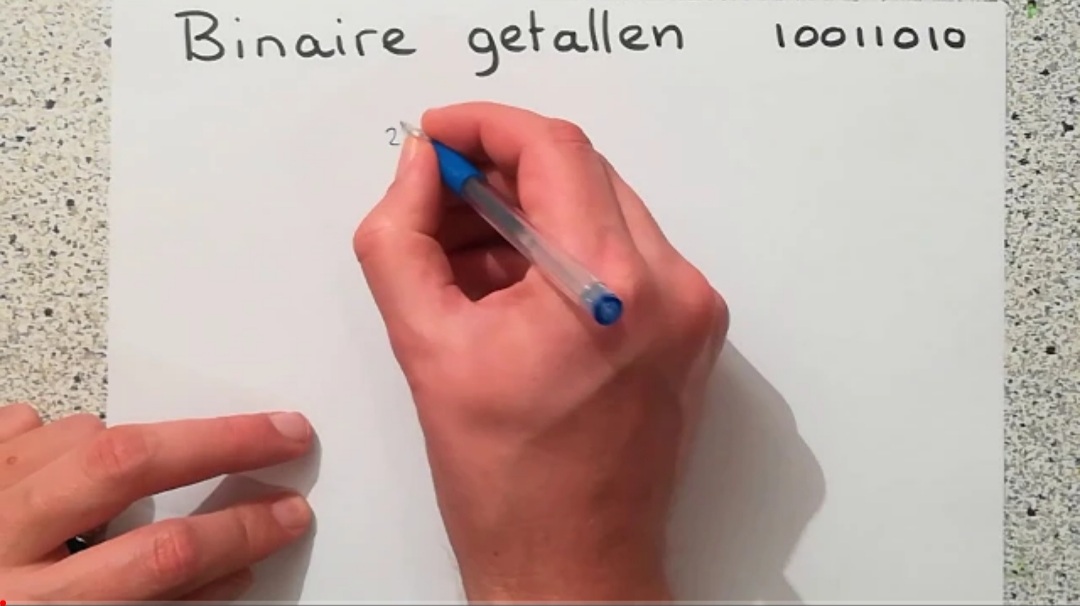 Binaire getallen 10011010
2